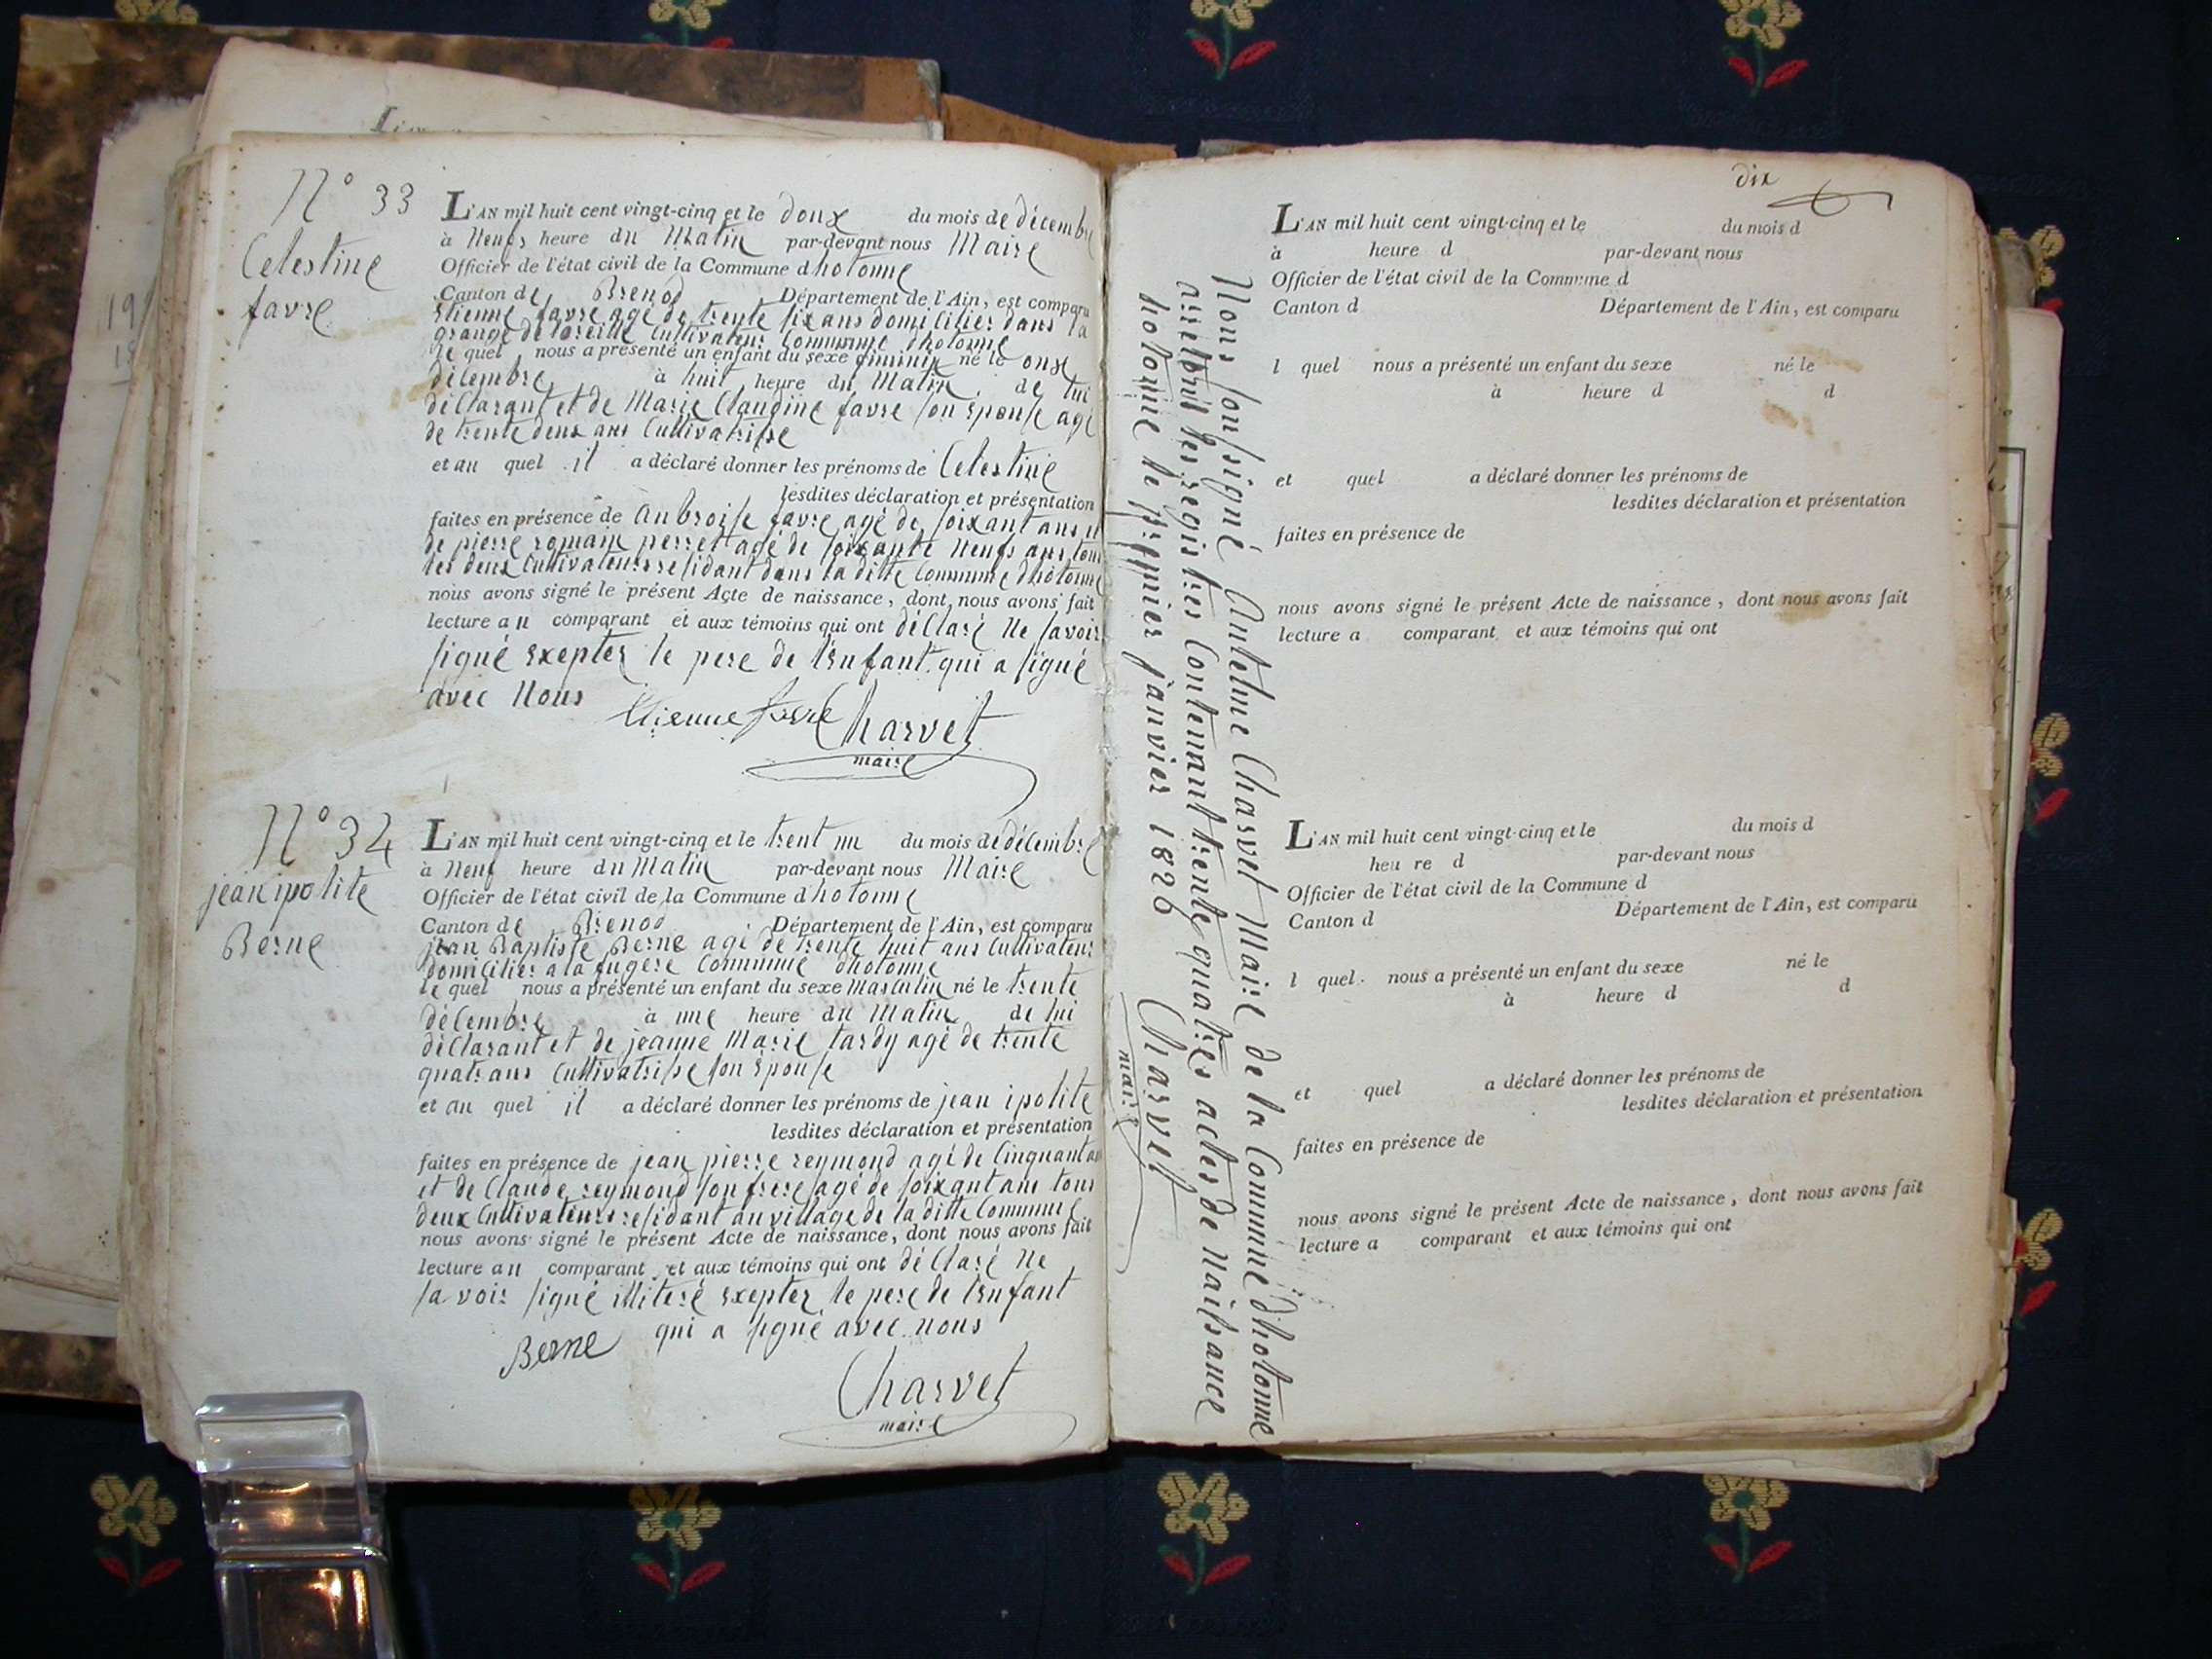 N° 33
Celestine
favre
L'AN mil huit cent vingt-cinq et le doux du mois de décembre
à Neufs heure du Matin par-devant nous Maire
Officier de l'état civil de la Commune d hotonne
Canton de Brenod Département de l'Ain, est comparu
Etienne favre agé de trente six ans domicilier dans la
grange de loreille Cultivateur Commune dhotonne
le quel nous a présenté un enfant du sexe né le onze
décembre à huit heure du Matin de lui
déclarant et de Marie Claudine favre son Epouse agé
de trente deux ans Cultivatrisse
et au quel il a déclaré donner les prénoms de Celestine
lesdites déclaration et présentation
faites en présence de anbroise favre agé de soixant ans et
de pierre romain perret agé de soixante Neufs ans tous
les deux Cultivateurs residant dans la ditte Commune dhotonne
nous avons signé le présent Acte de naissance, dont nous avons fait
lecture au comparant et aux témoins qui ont déClaré Ne savoir
signé Exepter le pere de lEnfant qui a signé
avec Nous Etienne favre Charvet
maire
N° 34
jean ipolite
Berne
L'AN mil huit cent vingt-cinq et le trent un du mois de décembre
à Neuf heure du Matin par-devant nous Maire
Officier de l'état civil de la Commune d hotonne
Canton de Brenod Département de l'Ain, est comparu
jean Baptiste Berne agé de trente huit ans Cultivateur
domicilier a la fugere Commune dhotonne
le quel nous a présenté un enfant du sexe Masculin né le trente
déCembre à une heure du Matin de lui
déClarant et de jeanne Marie tardy agé de trente
quatr ans Cultivatrisse son Epouse
et au quel il a déclaré donner les prénoms de jean ipolite
lesdites déclaration et présentation
faites en présence de jean pierre reymond agé de Cinquant ans
et de Claude reymond son frere agé de soixant ans tous
deux Cultivateurs residant au village de la ditte Commune
nous avons signé le présent Acte de naissance, dont nous avons fait
lecture au comparant et aux témoins qui ont déClaré Ne
savoir signé illiteré Exepter le pere de lEnfant
qui a signé avec nous
Berne
Charvet
maire
Nous soussigné Antelme Charvet Maire de la Commune dhotonne
les registres Contennant trente quatres actes de Naissance
hotonne le premier janvier 1826 Charvet
maire
dix
L'AN mil huit cent vingt-cinq et le du mois d
à heure d par-devant nous
Officier de l'état civil de la Commune d
Canton d Département de l'Ain, est comparu
l quel nous a présenté un enfant du sexe né le
à heure d d
et quel a déclaré donner les prénoms de
lesdites déclaration et présentation
faites en présence de
nous avons signé le présent Acte de naissance, dont nous avons fait
lecture a comparant et aux témoins qui ont
L'AN mil huit cent vingt-cinq et le du mois d
heu re d par-devant nous
Officier de l'état civil de la Commune d
Canton d Département de l'Ain, est comparu
l quel nous a présenté un enfant du sexe né le
à heure d d
et quel a déclaré donner les prénoms de
lesdites déclaration et présentation
faites en présence de
nous avons signé le présent Acte de naissance, dont nous avons fait
lecture a comparant et aux témoins qui ont